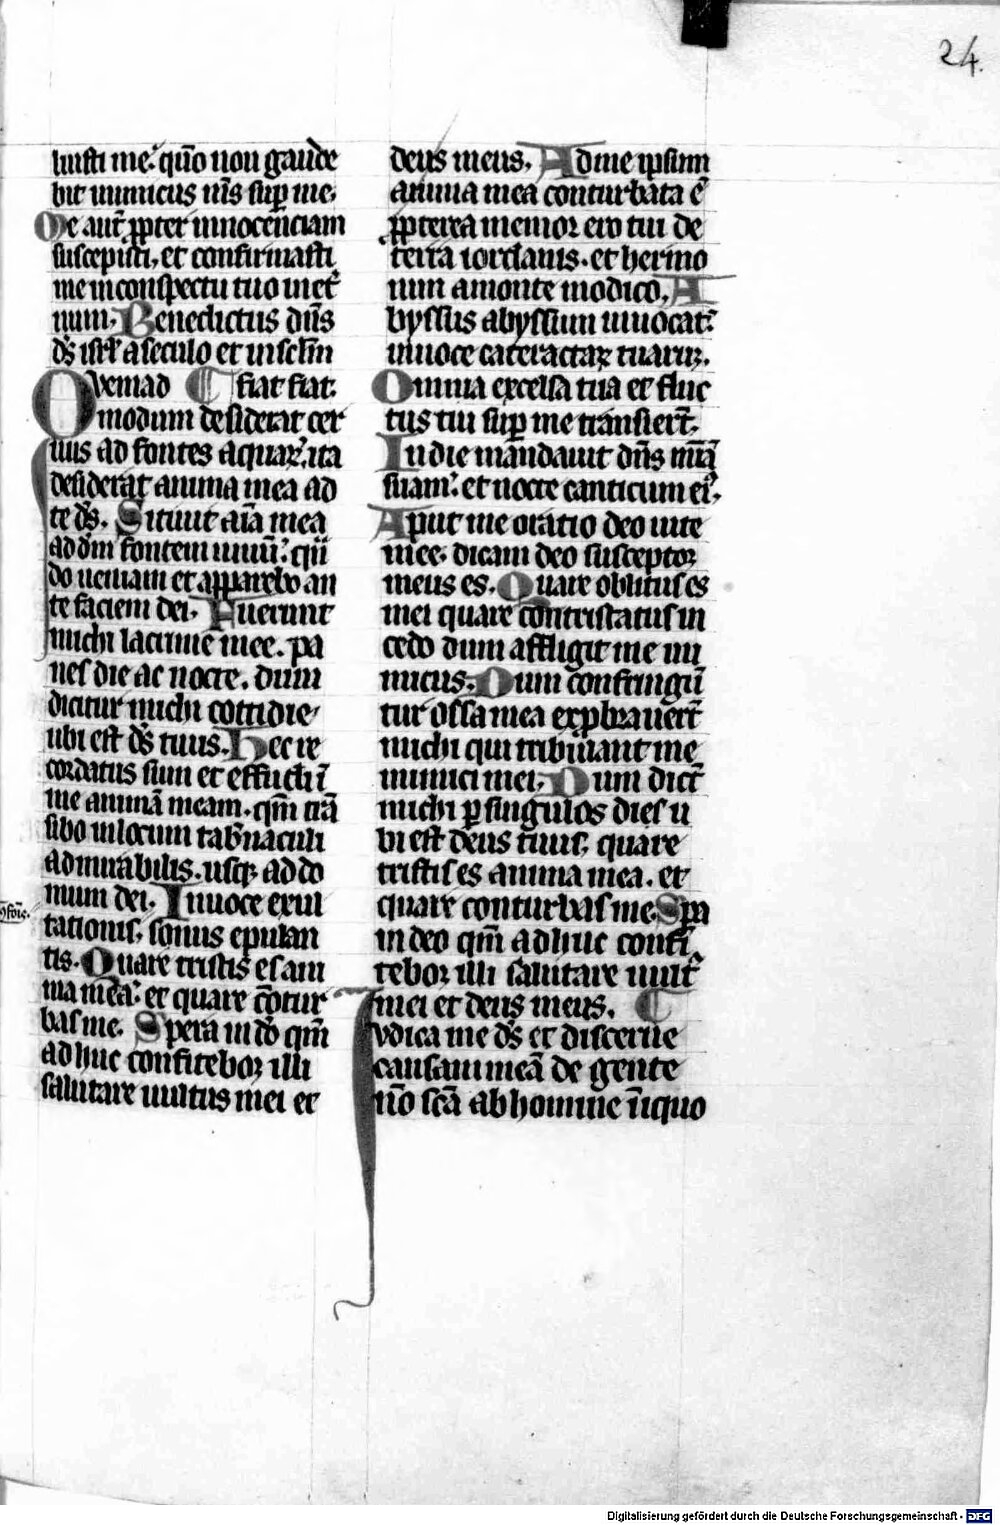 24.
luisti me: quo̅ non gaude
bit inimicus m̅s sup̱ me.
Me aut̅ ꝓpter innocenciam
suscepisti, et confirmasti
me inconspectu tuo in et̾
num. Benedictus dn̅s
ds̅ isrl̅ a seculo et in sclm̅
Qvemad ¶ fiat fiat.
modum desiderat cer
uus ad fontes aquaꝝ. ita
desiderat anima mea ad
te ds̅. Sitiuit ai̅a mea
ad dm̅ fontem uiuu̅: qn̅
do ueniam et apparebo an
te faciem dei. Fuerunt
michi lacrime mee. pa
nes die ac nocte. dum
dicitur michi cottidie
ubi est ds̅ tuus. Hec re
cordatus sum et effudi i̅
me anima̅ meam. qm̅ tra̅
sibo in locum tab̅naculi
admirabilis. usqꝫ ad do
mum dei. In uoce exul
tationis, sonus epulan
tis. Quare tristis es ani
ma mea: et quare co̅tur
bas me. Spera in do̅ qm̅
adhuc confitebor illi
salutare uultus mei et
deus meus. Ad me ipsum
anima mea conturbata e̅
ꝓpterea memor ero tui de
terra iordanis. et hermo
nim a monte modico. A
byssus abyssum inuocat:
in uoce cateractaꝝ tuaruꝫ.
Omnia excelsa tua et fluc
tus tui sup̱ me transiert̅.
In die mandauit dn̅s mi̅a̅
suam: et nocte canticum ei̾.
Aput me oratio deo uite
mee. dicam deo susceptor
meus es. Quare oblitus es
mei quare contristatus in
cedo dum affligit me ini
micus. Dum confringu̅
tur ossa mea exp̱brauert̅
michi qui tribulant me
inimici mei. Dum dict̅
michi p̱ singulos dies u
bi est deus tuus, quare
tristis es anima mea. et
quare conturbas me. Sp̱a
in deo qm̅ adhuc confi
tebor illi salutare uult̾
mei et deus meus. ¶
Ivdica me ds̅ et discerne
causam mea̅ de gente
no̅ sca̅ ab homine i̅iquo
Digitalisierung gefördert durch die Deutsche Forschungsgemeinschaft - DFG